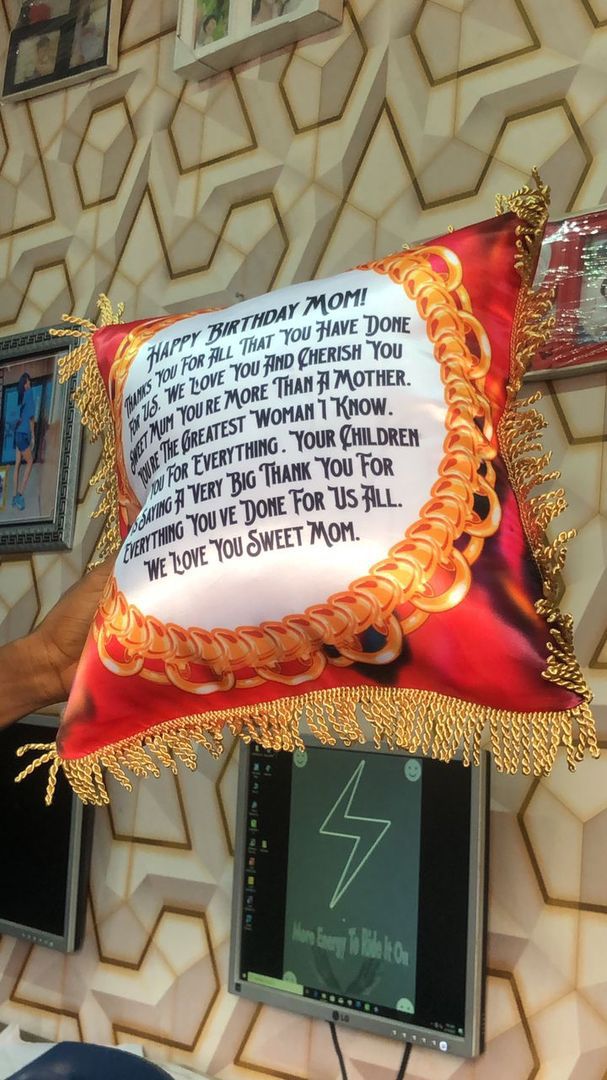 Happy Birthday Mom!
Thanks You For All That You Have Done
For Us. We Love You And Cherish You
Sweet Mum You're More Than A Mother.
You're The Greatest Woman I Know.
You For Everything. Your Children
Saying A Very Big Thank You For
Everything You've Done For Us All.
We Love You Sweet Mom.
More Energy To Ride It On
LG